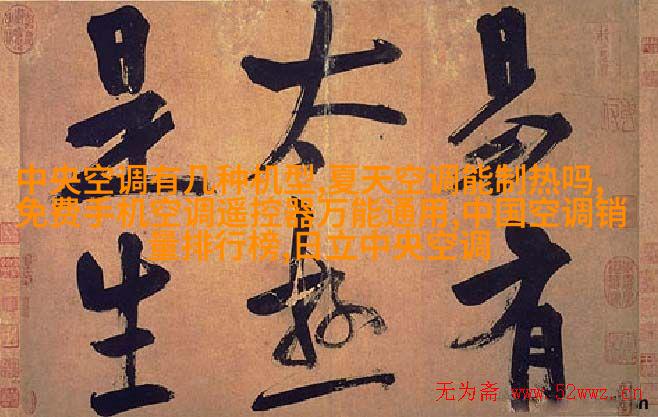 易有
太極
是生
中央空调有几种机型,夏天空调能制热吗,
免费手机空调遥控器万能通用,中国空调销
量排行榜,日立中央空调
无为斋 www.52wwz.cn